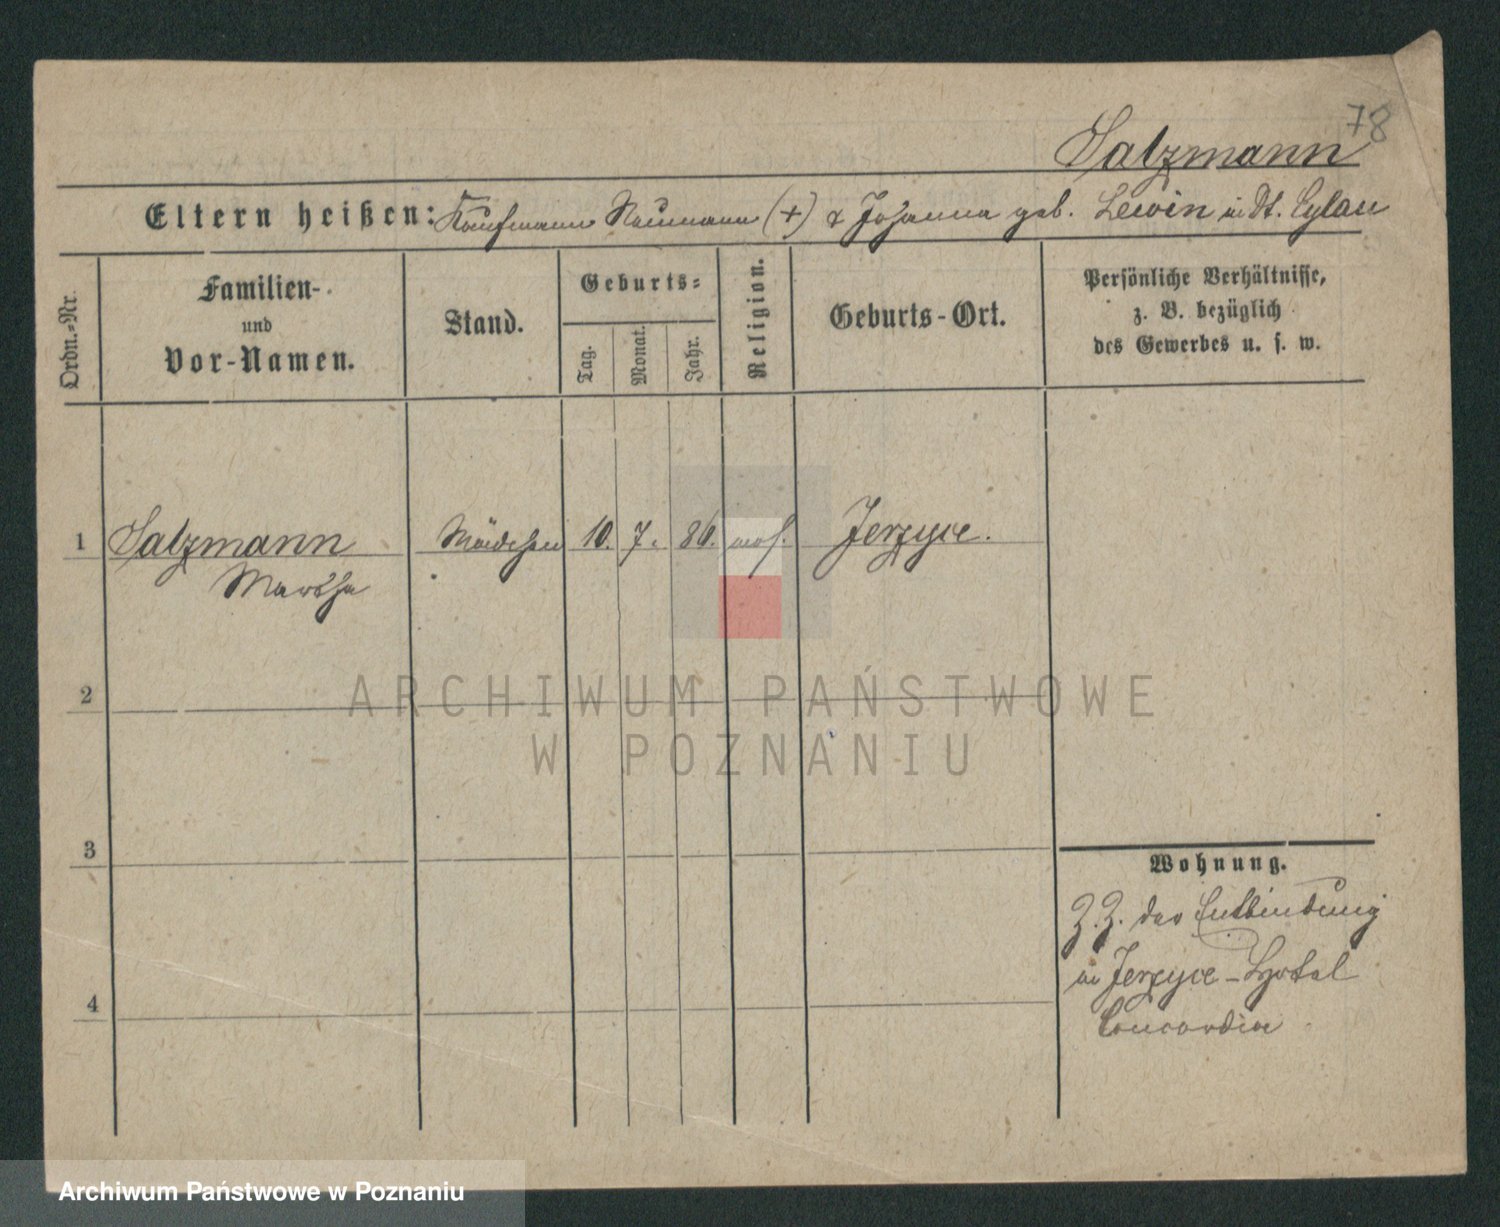 78
Salzmann
Eltern heißen: Kaufmann Neumann (+) & Johanna geb. Lewin in Dt. Eylau
Ordn.-Nr.
Familien-
und
Vor-Namen.
Stand.
Geburts-
Tag.
Monat.
Jahr.
Religion.
Geburts-Ort.
Persönliche Verhältnisse,
z. B. bezüglich
des Gewerbes u. s. w.
1 Salzmann Mädchen 10. 7. 86. mos. Jerzyce.
Martha
2
ARCHIWUM PAŃSTWOWE
W POZNANIU
3
Wohnung.
Z. Z. der Entbindung
in Jerzyce - Hotel
Concordia
4
Archiwum Państwowe w Poznaniu